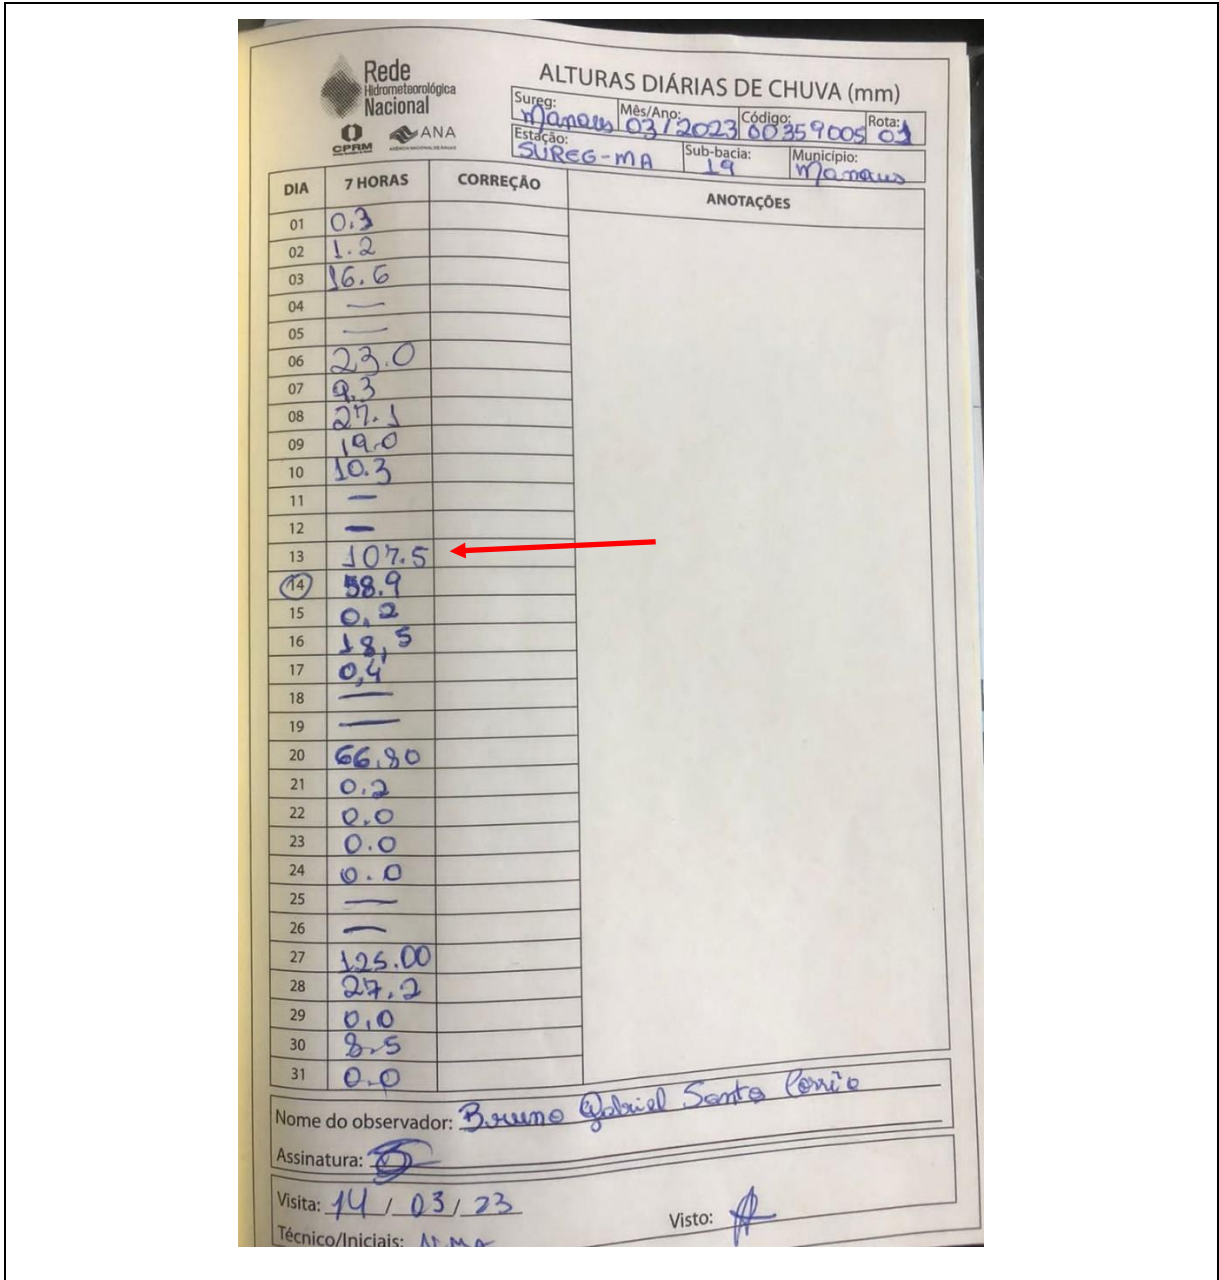 Rede
Hidrometeorológica
Nacional
CPRM
ANA
AGÊNCIA NACIONAL DE ÁGUAS
ALTURAS DIÁRIAS DE CHUVA (mm)
Sureg: Manaus Mês/Ano: 03/2023 Código: 00359005 Rota: 01
Estação: SUREG-MA Sub-bacia: 19 Município: Manaus
DIA 7 HORAS CORREÇÃO ANOTAÇÕES
01 0.3
02 1.2
03 16.6
04 —
05 —
06 23.0
07 9.3
08 27.1
09 19.0
10 10.3
11 —
12 —
13 107.5
14 58.9
15 0.2
16 18,5
17 0,4
18 —
19 —
20 66.80
21 0.2
22 0.0
23 0.0
24 0.0
25 —
26 —
27 125.00
28 27.2
29 0,0
30 8.5
31 0.0
Nome do observador: Bruno Gabriel Santo
Assinatura:
Visita: 14 / 03 / 23
Visto:
Técnico/Iniciais: